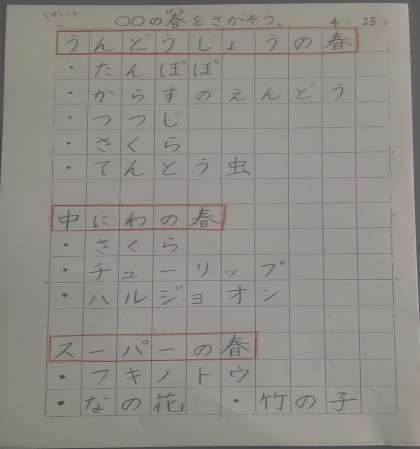 〇〇の春をさがそう。 4 23
うんどうじょうの春
・たんぽぽ
・からすのえんどう
・つつじ
・さくら
・てんとう虫
中にわの春
・さくら
・チューリップ
・ハルジョオン
スーパーの春
・フキノトウ
・なの花 ・竹の子